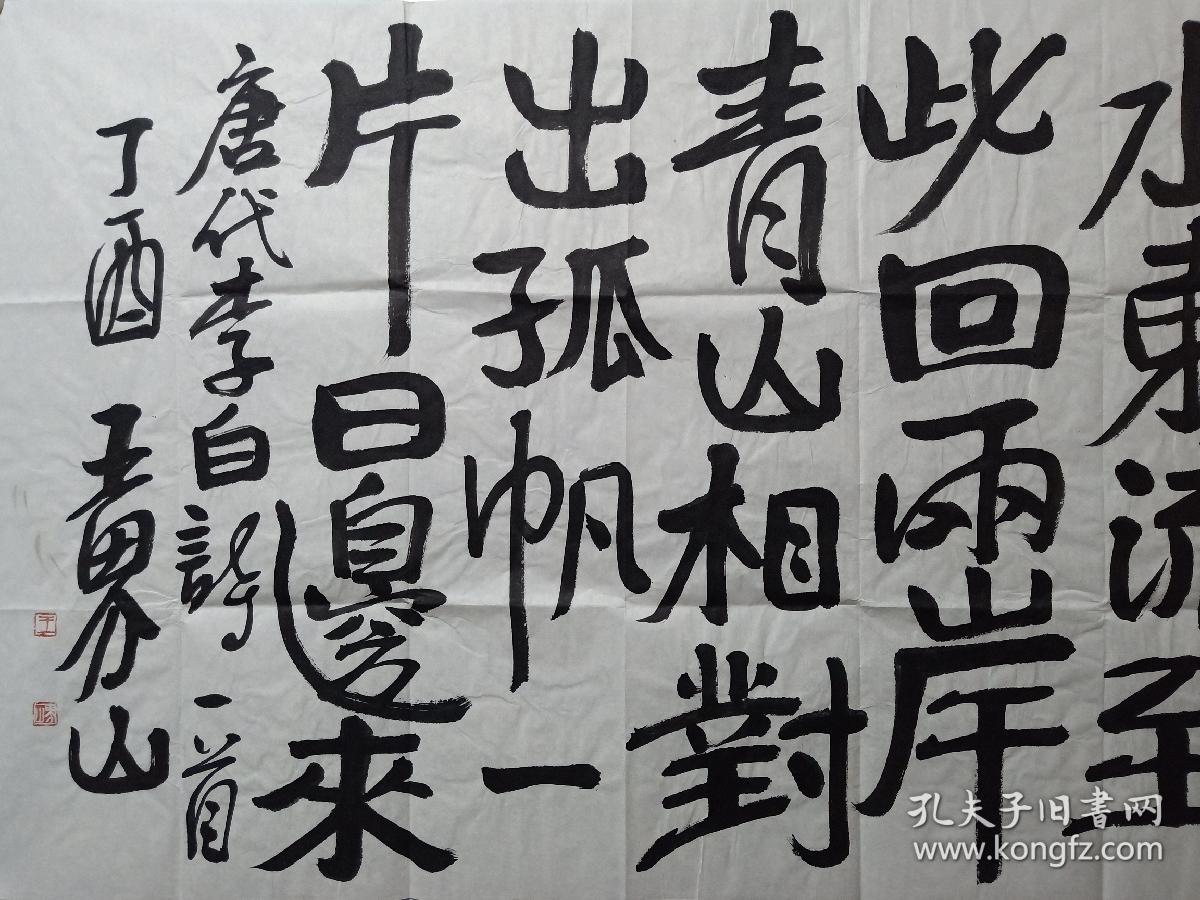 水東流至
此回兩岸
青山相對
出孤帆一
片日邊來
唐代李白詩一首
丁酉 王界山
孔夫子旧書网
www.kongfz.com